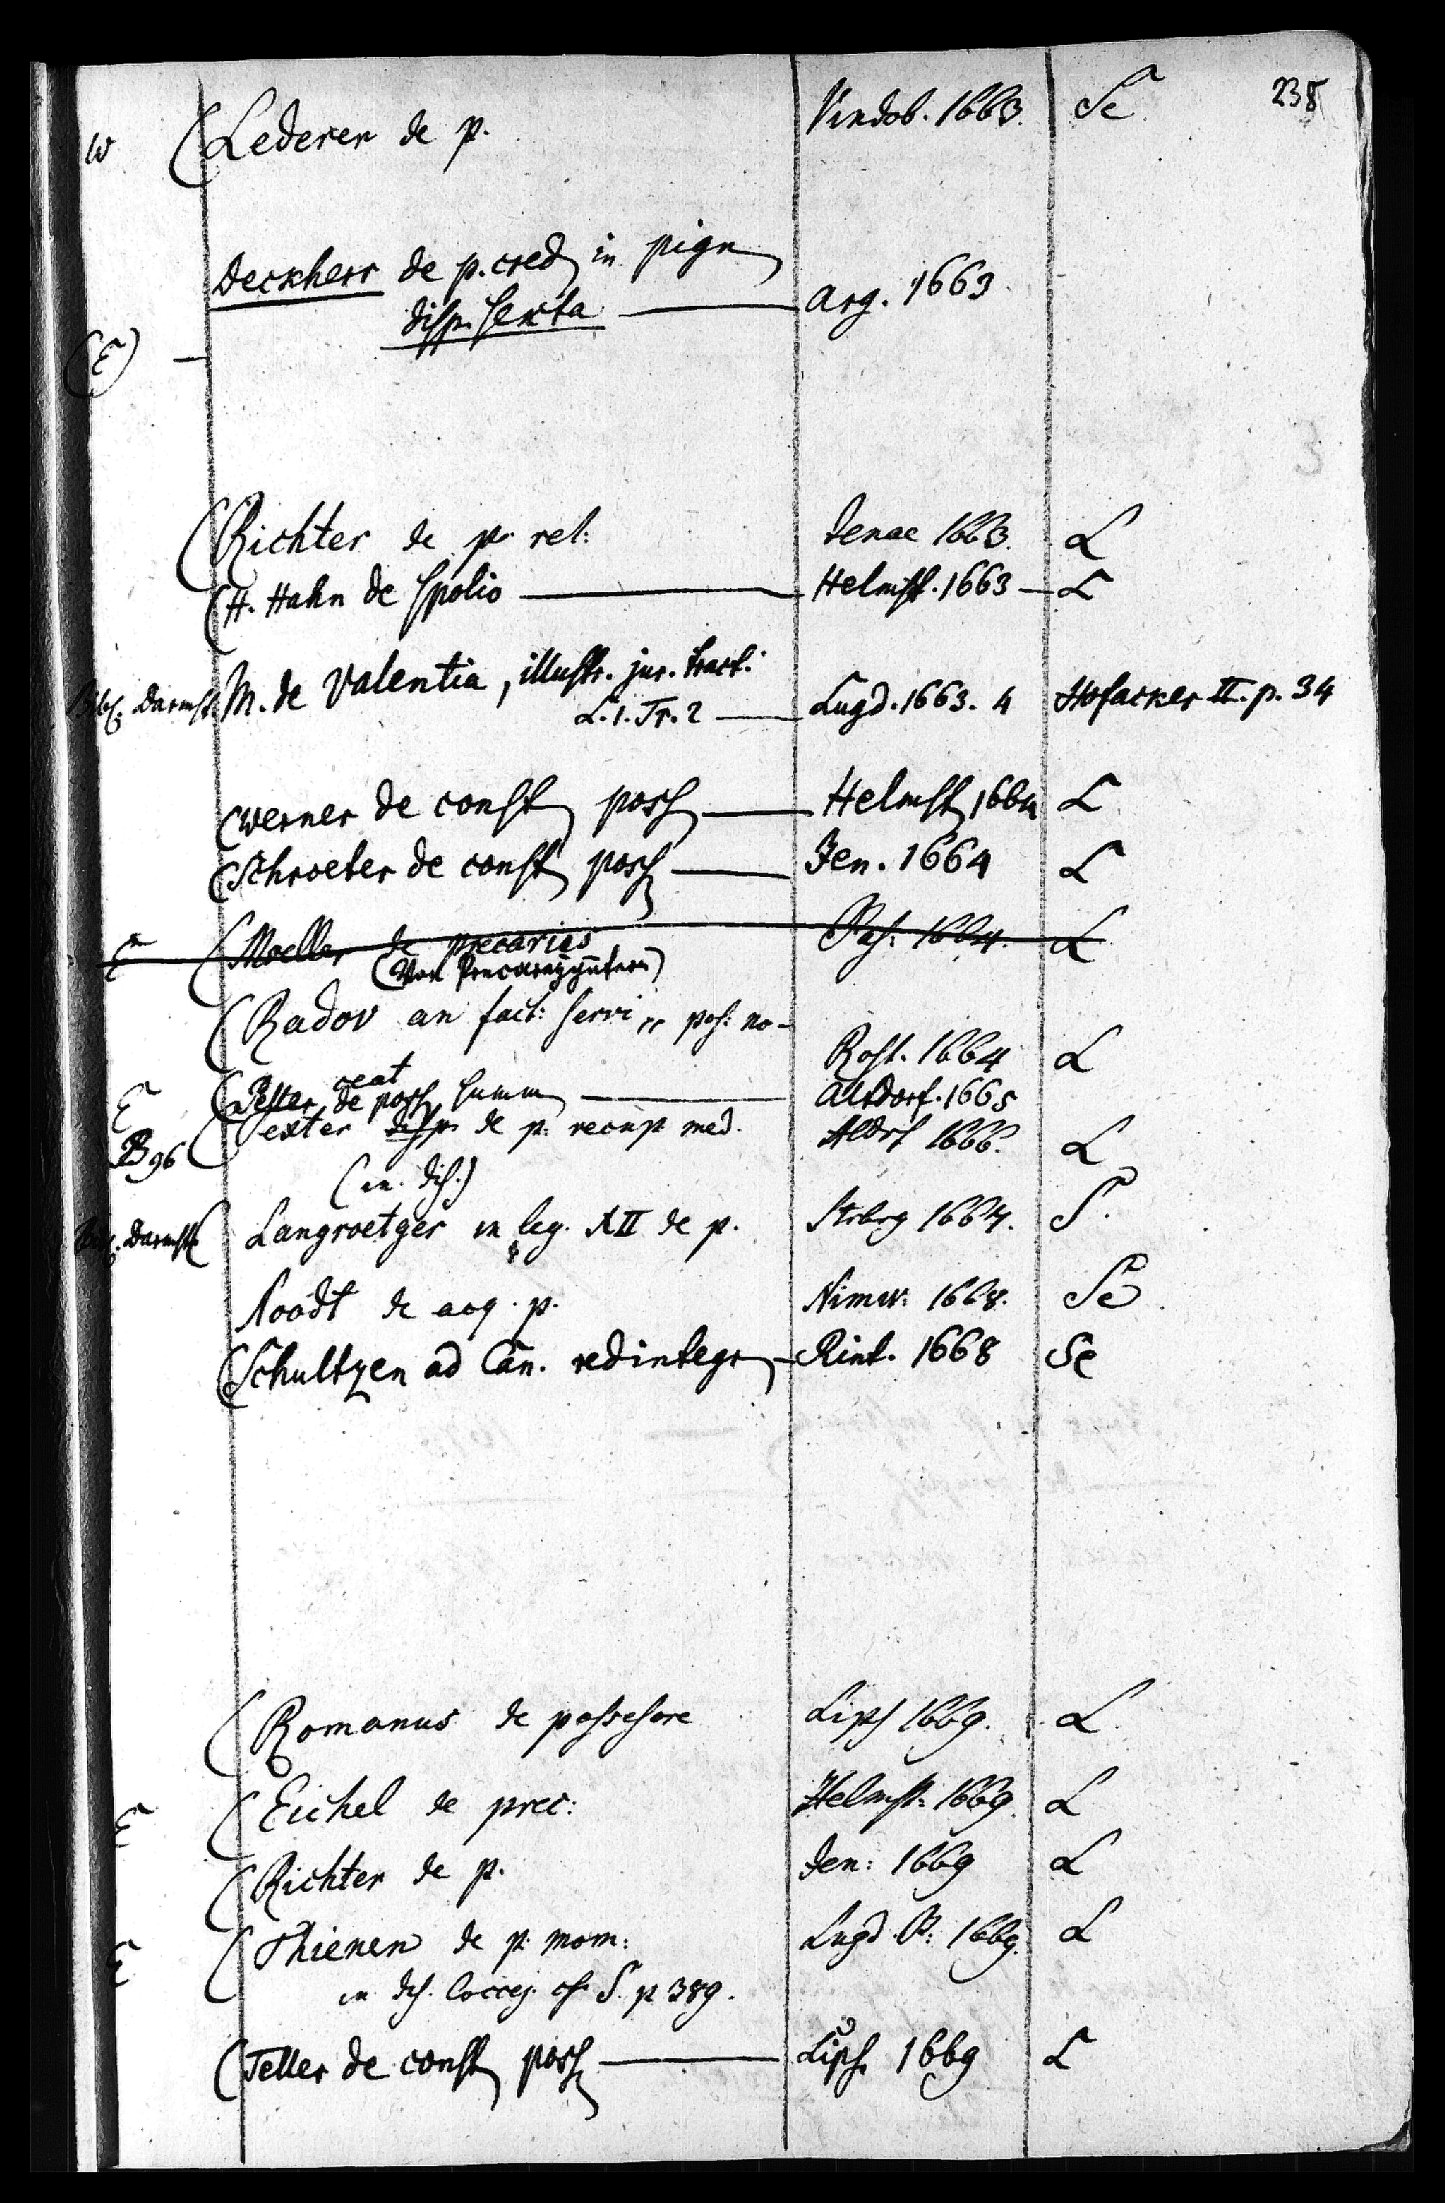 238
w (Lederer de p. Vindob. 1663. Se
Deckherr de p. cred in pign
disp. sexta — Arg. 1663
(E) —
(Richter de p. rel: Jenae 1663. L
(H. Hahn de spolio — Helmst. 1663 — L
Bibl. Darmst. M. de Valentia, illustr. jur. tract.
L. 1. Tr. 2 — Lugd. 1663. 4 Hofacker II. p. 34
(Werner de const poss — Helmst 1664 L
(Schroeter de const poss — Jen. 1664 L
E (Moeller de precariis 1664. L
(Von Precareygütern)
(Radov an fact: servi poss: no-
ceat Rost. 1664 L
E de poss summ — Altdorf. 1665
B 96 (Texter disp. de p. recup med. Aldrf 1666. L
(in. dis.)
Bibl. Darmst. (Langroetger in leg. XII de p. Strbrg 1667. S.
Noodt de acq. p. Nimw: 1668. Se
(Schultzen ad Can. redintegr — Rint. 1668 Se
(Romanus de possessore Lips 1669. L
E (Eichel de prec: Helmst: 1669. L
(Richter de p. Jen: 1669 L
E (Thienen de p. mom: Lugd. B: 1669. L
in dis. Coccej. cf. S. p 389.
(Teller de const poss — Lips. 1669 L